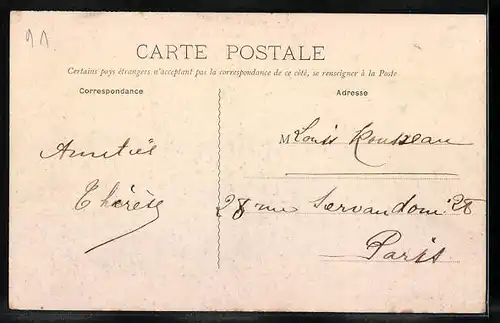 91
CARTE POSTALE
Certains pays étrangers n'acceptant pas la correspondance de ce côté, se renseigner à la Poste
Correspondance
Adresse
Amitiés
Thérèse
M Louis Rousseau
28 rue Servandoni 28
Paris